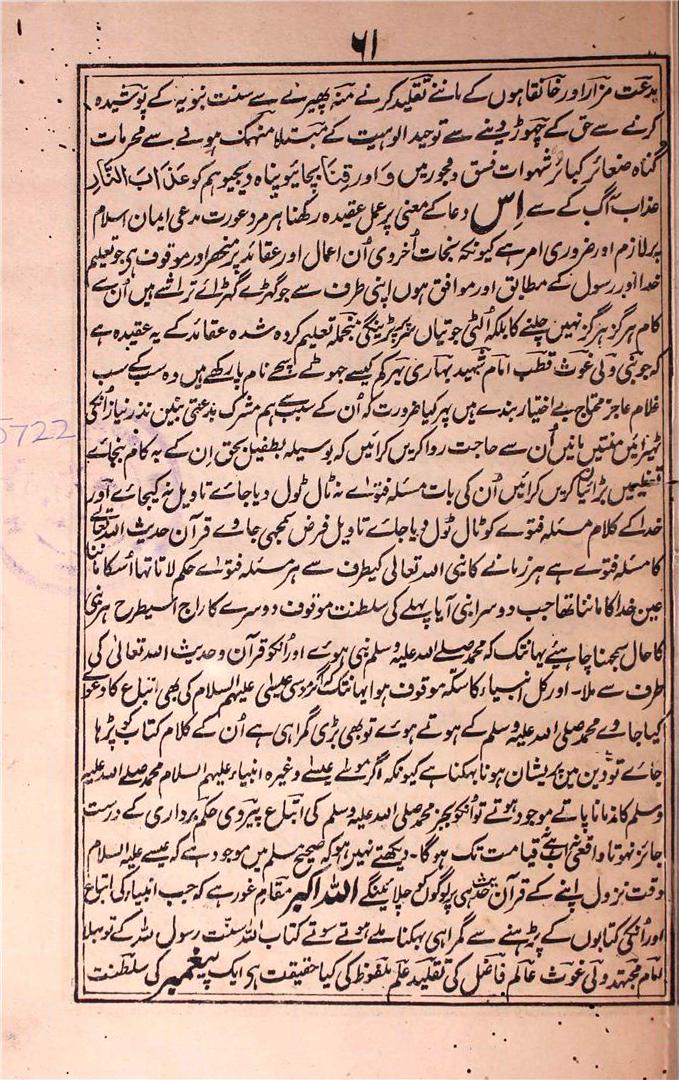 ٦١
بدعت مزار اور خانقاہوں کے ماننے تقلید کرنے منہ پھیرنے سے سنت نبویہ کے پوشیدہ
کرنے سے حق کے چھوڑ دینے سے توحید الوہیت کے مبتلا منہمک ہونے سے محرمات
گناہ صغائر کبائر شہوات فسق و فجور میں وَ اور قِنَا بچائیو پناہ دیجیو ہم کو عَذَابَ النَّارِ
عذاب آگ کے سے اِس دعا کے معنی پر عمل عقیدہ رکھنا ہر مرد عورت مدعی ایمان اسلام
پر لازم اور ضروری امر ہے کیونکہ نجات اُخروی اُن اعمال اور عقائد پر منحصر اور موقوف ہی جو تعلیم
خدا اور رسول کے مطابق اور موافق ہوں اپنی طرف سے جو گھڑے گھڑائے تراشے ہیں اُن سے
کام ہرگز ہرگز نہیں چلنے کا بلکہ اُلٹی جوتیاں سر پر پڑینگی منجملہ تعلیم کردہ شدہ عقائد کے یہ عقیدہ ہے
کہ جو نبی ولی غوث قطب امام شہید بہاری بہرکم کیسے جھوٹے سچے نام پا رکھے ہیں وہ سب کے سب
غلام عاجز محتاج بے اختیار بندے ہیں پھر کیا ضرورت کہ اُن کے سبب سے ہم مشرک بدعتی بنین نذر نیاز اُنکی
ٹھیرائیں منتیں مانیں اُن سے حاجت روا کریں کرائیں کہ بوسیلہ بطفیل بحق اِن کے یہ کام بنجائے
تعظیمیں بڑائیاں کریں کرائیں اُن کی بات مسئلہ فتوے نہ ٹال ٹول دیا جائے تاویل نہ کیجائے اور
خدا کے کلام مسئلہ فتوے کو ٹال ٹول دیا جائے تاویل فرض سمجھی جاوے قرآن حدیث اللہ تعالی
کا مسئلہ فتوے ہے ہر زمانے کا نبی اللہ تعالی کیطرف سے ہر مسئلہ فتوے حکم لاتا تھا اُسکا ماننا
عین خدا کا ماننا تھا جب دوسرا نبی آیا پہلے کی سلطنت موقوف دوسرے کا راج اسیطرح ہر نبی
کا حال سمجھنا چاہئے یہانتک کہ محمد صلے اللہ علیہ وسلم نبی ہوے اور اُنکو قرآن وحدیث اللہ تعالیٰ کی
طرف سے ملا۔ اور کل انبیاء کا سکہ موقوف ہوا یہانتک کہ اگر موسی عیسیٰ علیہم السلام کی بھی اتباع کا دعوا
کیا جاوے محمد صلی اللہ علیہ وسلم کے ہوتے ہوے تو بھی بڑی گمراہی ہے اُن کے کلام کتاب کو پڑہا
جائے تو دین مین پریشان ہونا بہکنا ہے کیونکہ اگر موسے عیسے وغیرہ انبیاء علیہم السلام محمد صلے اللہ علیہ
وسلم کا زمانا پاتے موجود ہوتے تو اُنکو بجز محمد صلی اللہ علیہ وسلم کی اتباع پیروی حکم برداری کے درست
جائز نہوتا واقعی اب بھی قیامت تک ہوگا۔ دیکھتے نہیں ہو کہ صحیح مسلم میں موجود ہے کہ عیسے علیہ السلام
وقت نزول اپنے کے قرآن حدیث ہی پر لوگوں کو چلائینگے اللہ اکبر مقام غور ہے کہ جب انبیاء کی اتباع
اور اُنکی کتابوں کے پڑہنے سے گمراہی بہکنا ملے ہوتے سوتے کتاب اللہ سنت رسول اللہ کے تو بھلا
امام مجتہد ولی غوث عالم فاضل کی تقلید علم ملفوظ کی کیا حقیقت ہی ایک پیغمبر کی سلطنت
5722